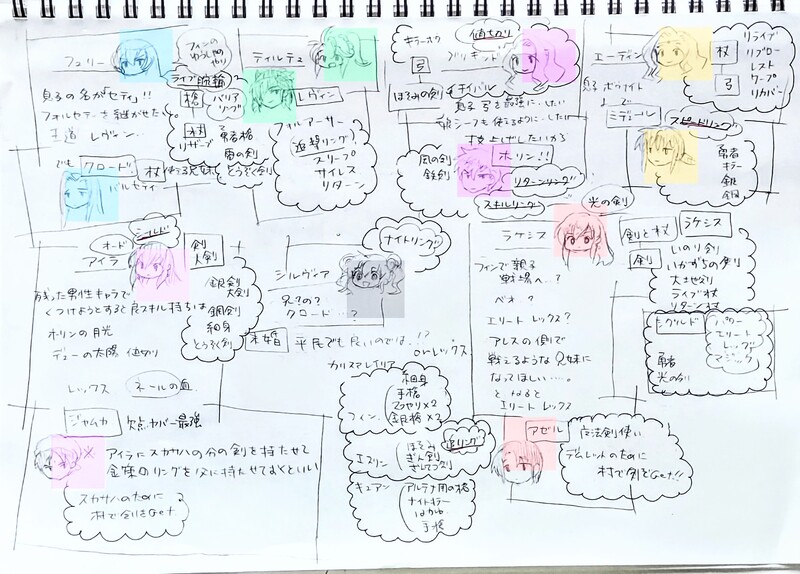 フュリー
フィンの
ゆうしゃの
やり
ライブ腕輪
息子の名が「セティ」!!
フォルセティを継がせたい
王道 レヴィン..
槍
バリア
リブロー
杖
リザーブ
勇者槍
風の剣
とうぞく剣
でも クロード 杖 使える兄妹
バルセティ
ティルテュ
レヴィン
フォルアーサー
追撃リング?
スリープ
サイレス
リターン
キラーボウ
値切り
ブリギッド
弓
ほそみの剣
チイバル
息子 弓を最強にしたい
娘 シーフも使えるようにしたい
技上げしたいから
風の剣
鉄剣
ホリン!!
リターンリング
スキルリング
エーディン
息子 ボウナイト
杖
弓
リライブ
リブロー
レスト
ワープ
リカバー
ミデェール
スピードリング
勇者
キラー
銀
鋼
オード
シールド
アイラ
剣
大剣
残った男性キャラで
くっつけようとすると良スキル持ちは
ホリンの月光
デューの太陽 値切り
レックス ネールの血
銀剣
大剣
鋼剣
細身
とうぞく剣
シルヴィア
ナイトリング
踊り
兄?の?
クロード...?
未婚 平民でも良いのでは..!?
orレックス
光の剣
ラケシス
剣と杖
ラケシス
フィンで親子
戦場へ..?
ベオ..?
エリート レックス?
アレスの側で
戦えるような兄妹に
なってほしい....。
となると
エリート レックス
剣
いのり剣
いかづちの剣
大地剣
ライブ杖
リターン杖
勇者
光の剣
パワー
エリート
レッグ
マジック
ジャムカ 欠点カバー最強
アイラにスカサハの分の剣を持たせて
金策のリングを父に持たせておくといい
スカサハのために
村で剣をGet
カリスマ
フィン
細身
手槍
ゆうしゃやり×2
銀槍×2
エスリン
ほそみ
ぎん剣
追リング
キュアン
アルテナ用の槍
ナイトキラー
はがね
手槍
アゼル
魔法剣使い
デルムッドのために
村で剣をGet!!